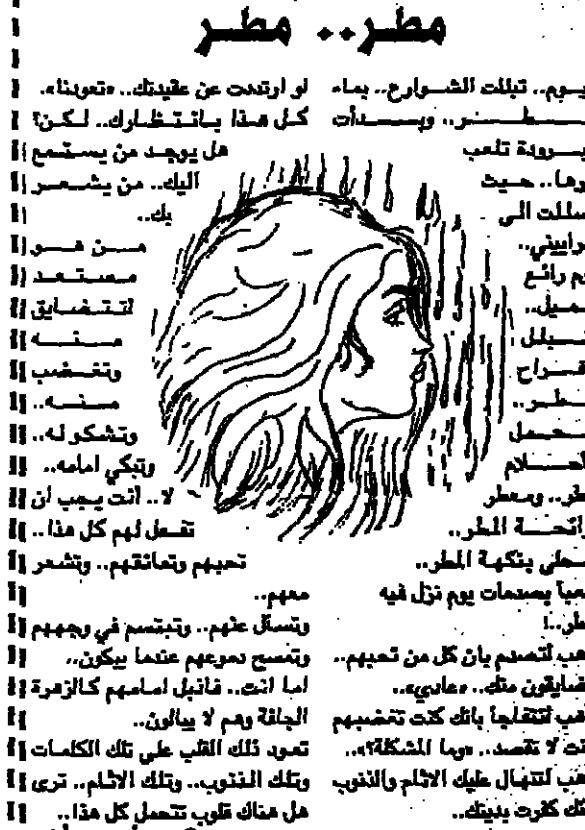 مطر.. مطر
يوم.. تبللت الشوارع.. بماء
مطر.. وبمدأت
برودة تلعب
حيث
الى
رائع
مطر.. ومعطر
رائحة المطر..
بنكهة المطر..
بصدمات يوم نزل فيه
لتصدم بان كل من تحبهم..
منك.. «عادي»..
لتتفاجأ بانك كنت تغضبهم
لا تقصد.. «وما المشكلة؟»..
لتنهال عليك الاثام والذنوب
كفرت بدينك..
لو ارتددت عن عقيدتك.. «تعودنا».
كل هذا بانتظارك.. لكن؟
هل يوجد من يستمع
اليك.. من يشعر
بك..
من هو
مستعد
لتتضايق
منه
وتغضب
منه..
وتشكو له..
وتبكي امامه..
لا.. انت يجب ان
تفعل لهم كل هذا..
تحبهم وتعانقهم.. وتشعر
معهم..
وتسأل عنهم.. وتبتسم في وجههم
وتمسح دموعهم عندما يبكون..
اما انت.. فاذبل امامهم كالزهرة
الجافة وهم لا يبالون..
تعود ذلك القلب على تلك الكلمات
وتلك الذنوب.. وتلك الاثام.. ترى
هل هناك قلوب تتحمل كل هذا..